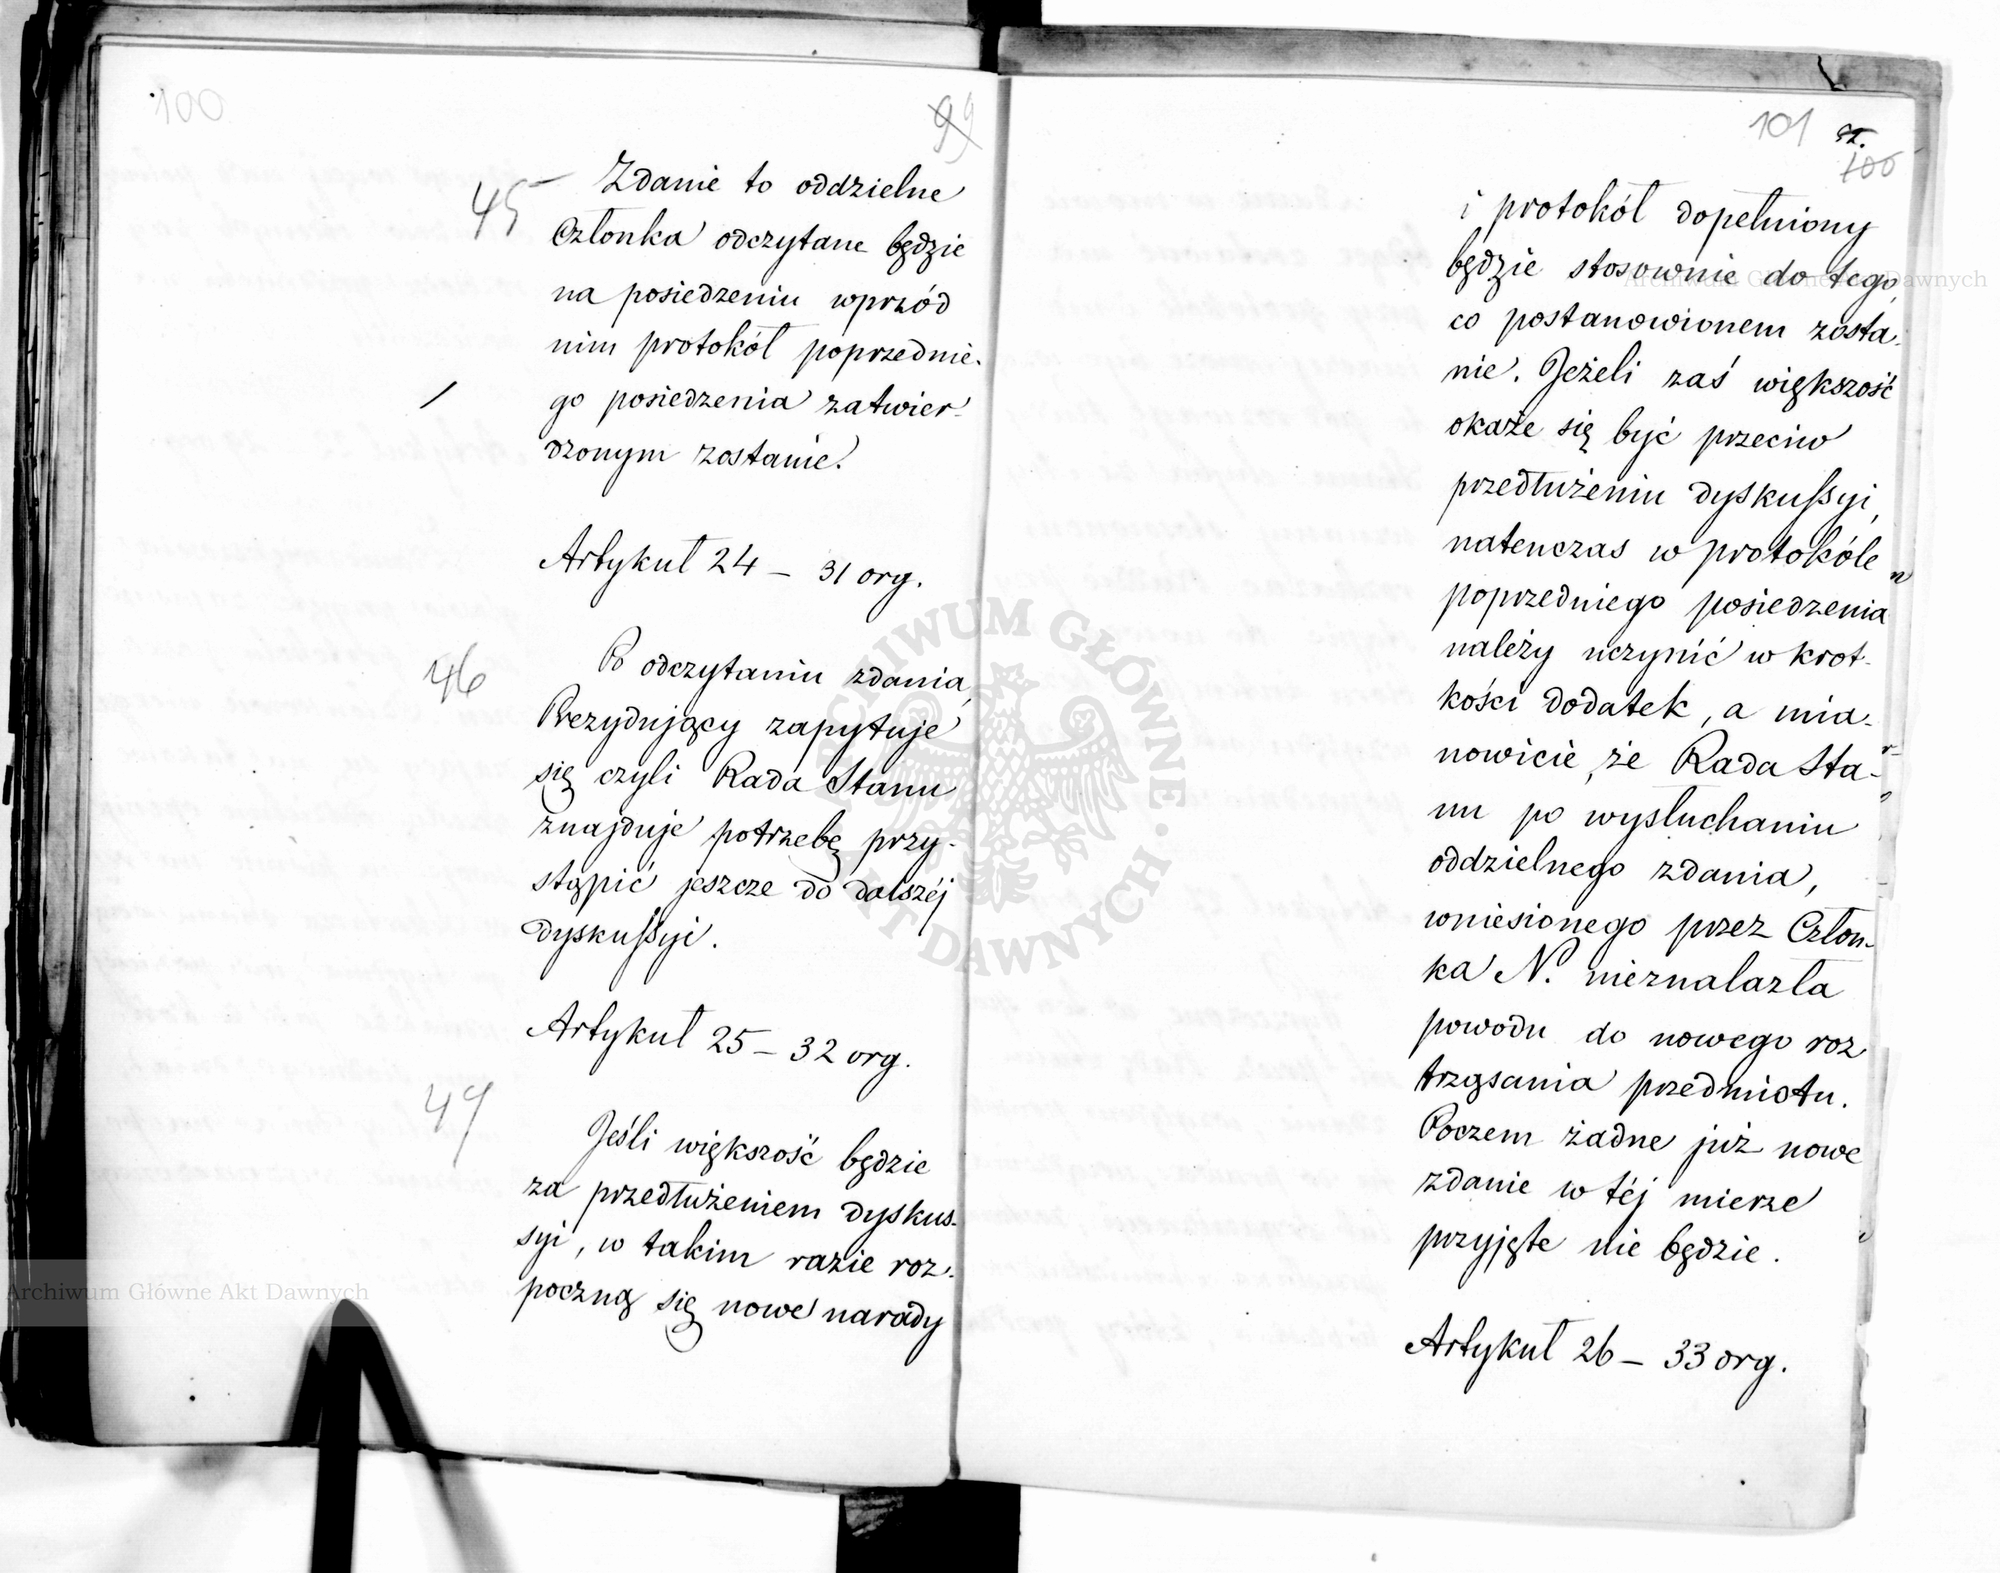 100
99
45 Zdanie to oddzielne
Członka odczytane będzie
na posiedzeniu wprzód
nim protokół poprzednie-
go posiedzenia zatwier-
dzonym zostanie.
Artykuł 24 – 31 org.
46
Po odczytaniu zdania,
Prezydujący zapytuje
się czyli Rada Stanu
znajduje potrzebę przy-
stąpić jeszcze do dalszéj
dyskussyi.
Artykuł 25 – 32 org.
47
Jeśli większość będzie
za przedłużeniem dyskus-
syi, w takim razie roz-
poczną się nowe narady
Archiwum Główne Akt Dawnych
101
100
i protokół dopełniony
będzie stosownie do tego,
Archiwum Główne Akt Dawnych
co postanowionem zosta-
nie. Jeżeli zaś większość
okaże się być przeciw
przedłużeniu dyskussyi,
natenczas w protokóle
poprzedniego posiedzenia
należy uczynić w krot-
kości dodatek, a mia-
nowicie, że Rada Sta-
nu po wysłuchaniu
oddzielnego zdania,
wniesionego przez Człon-
ka N. nieznalazła
powodu do nowego roz
trząsania przedmiotu.
Poczem żadne już nowe
zdanie w téj mierze
przyjęte nie będzie.
Artykuł 26 – 33 org.
ARCHIWUM GŁÓWNE AKT DAWNYCH